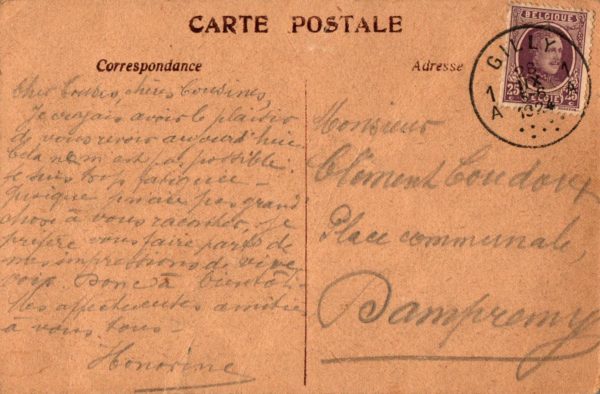 CARTE POSTALE
Correspondance
Adresse
BELGIQUE
25 BELGIË 25
GILLY
1 A 1 A
Cher Cousin, chères Cousines,
Je croyais avoir le plaisir
de vous revoir aujourd'hui
Cela ne m'est pas possible.
Je suis trop fatiguée -
Quoique j'ai pas grand
chose à vous raconter, je
préfère vous faire part de
mes impressions de vive
voix. Donc à bientôt.
Mes affectueuses amitiés
à vous tous -
Honorine
Monsieur
Clément
Place communale,
Dampremy